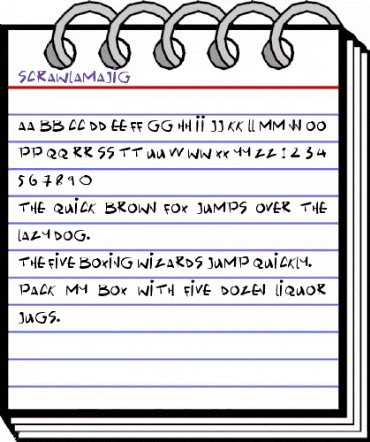 SCRAWLAMAJIG
AA BB CC DD EE FF GG HH II JJ KK LL MM NN OO
PP QQ RR SS TT UU VV WW XX YY ZZ 1 2 3 4
5 6 7 8 9 0
THE QUICK BROWN FOX JUMPS OVER THE
LAZY DOG.
THE FIVE BOXING WIZARDS JUMP QUICKLY.
PACK MY BOX WITH FIVE DOZEN LIQUOR
JUGS.